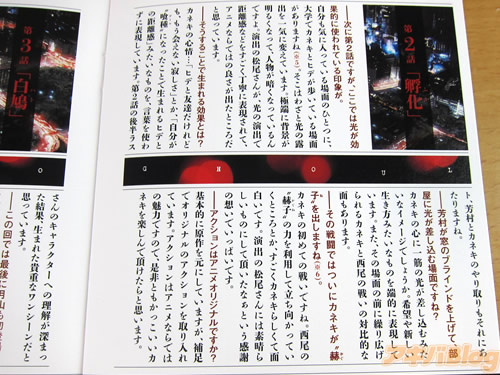 第2話「孵化」
――次に第2話ですが、ここでは光が効
果的に使われている印象が。
自分も気に入っている場面のひとつに、
大学でカネキとヒデが歩いている場面
がありますね(※5)。そこはわざと光の露
出を一気に変えています。極端に背景が
明るくなって、人物が暗くなっているん
ですよ。演出の松尾さんが、光の演出で
距離感などをすごく丁寧に表現されて、
アニメならではの良さが出たところだ
と思っています。
――そうすることで生まれる効果とは?
カネキの心情…ヒデと友達だけれど
も、もう会えない寂しさとか、「自分が
“喰種”になったことで生まれるヒデと
の距離感」みたいなものを、言葉を使わ
ずに表現しています。第2話の後半ラス
GHOUL
ト、芳村とカネキのやり取りもそれにあ
たりますね。
――芳村が窓のブラインドを上げて、部
屋に光が差し込む場面ですね?
カネキの心に一筋の光が差し込むみた
いなイメージでしょうか。希望や新しい
生き方みたいなものを端的に表現して
います。また、その場面の前に繰り広げ
られるカネキと西尾の戦いの対比的な
面もあります。
――その戦闘ではついにカネキが“赫
子”を出しますね(※6)。
カネキの初めての戦いですね。西尾の
“赫子”の力を利用して立ち向かってい
くところとか、すごくカネキらしくて面
白いです。演出の松尾さんには素晴ら
しいものにして頂いたなぁという感謝
の想いでいっぱいです。
――アクションはアニメオリジナルですか?
基本的に原作を元にしていますが、補足
でオリジナルのアクションを取り入れ
ています。アクションはアニメならでは
の魅力ですので、是非ともかっこいいカ
ネキを楽しんで頂けたらと思います。
第3話「白鳩」
さんのキャラクターへの理解が深まっ
た結果、生まれた貴重なワンシーンだと
思っています。
――この回では最後に月山も初登